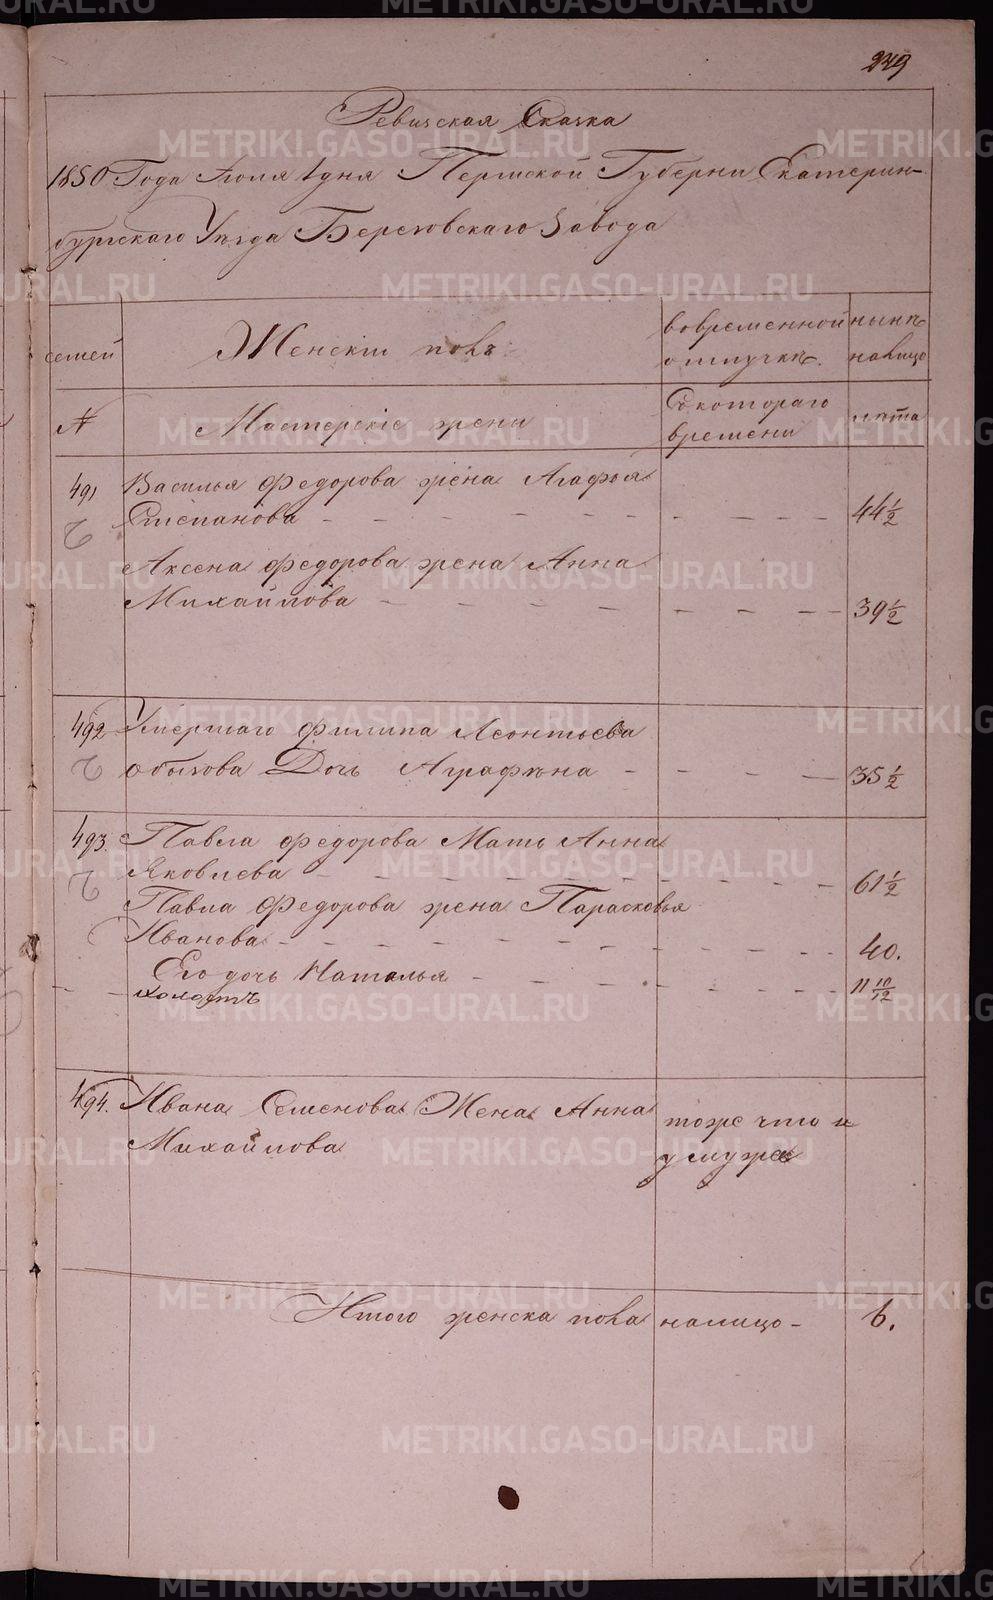 249
Ревизская Сказка
1850 Года Июля 1 дня Пермской Губерни Екатерин-
бургскаго Уезда Березовскаго Завода
семей
Женский полъ
во временной
отлучкѣ
нынѣ
налицо
№
Мастерскіе жены
Съ котораго
времени
лѣта
491 Василья Федорова жена Агафья
Степанова - - - - - - - - - 44 1/2
Аксена Федорова жена Анна
Михайлова - - - - - - - - - 39 1/2
492 Умершаго Филипа Леонтьева
Дочь Аграфѣна - - - - 35 1/2
493. Павла Федорова Мать Анна
Яковлева - - - - - - - - - 61 1/2
Павла Федорова жена Парасковья
Иванова - - - - - - - - - 40.
Его дочь Наталья - - - - - - 11 10/12
холостъ
494. Ивана Семенова Жена Анна
Михайлова
тоже что и
у мужа
Итого женска пола налицо - 6.
METRIKI.GASO-URAL.RU